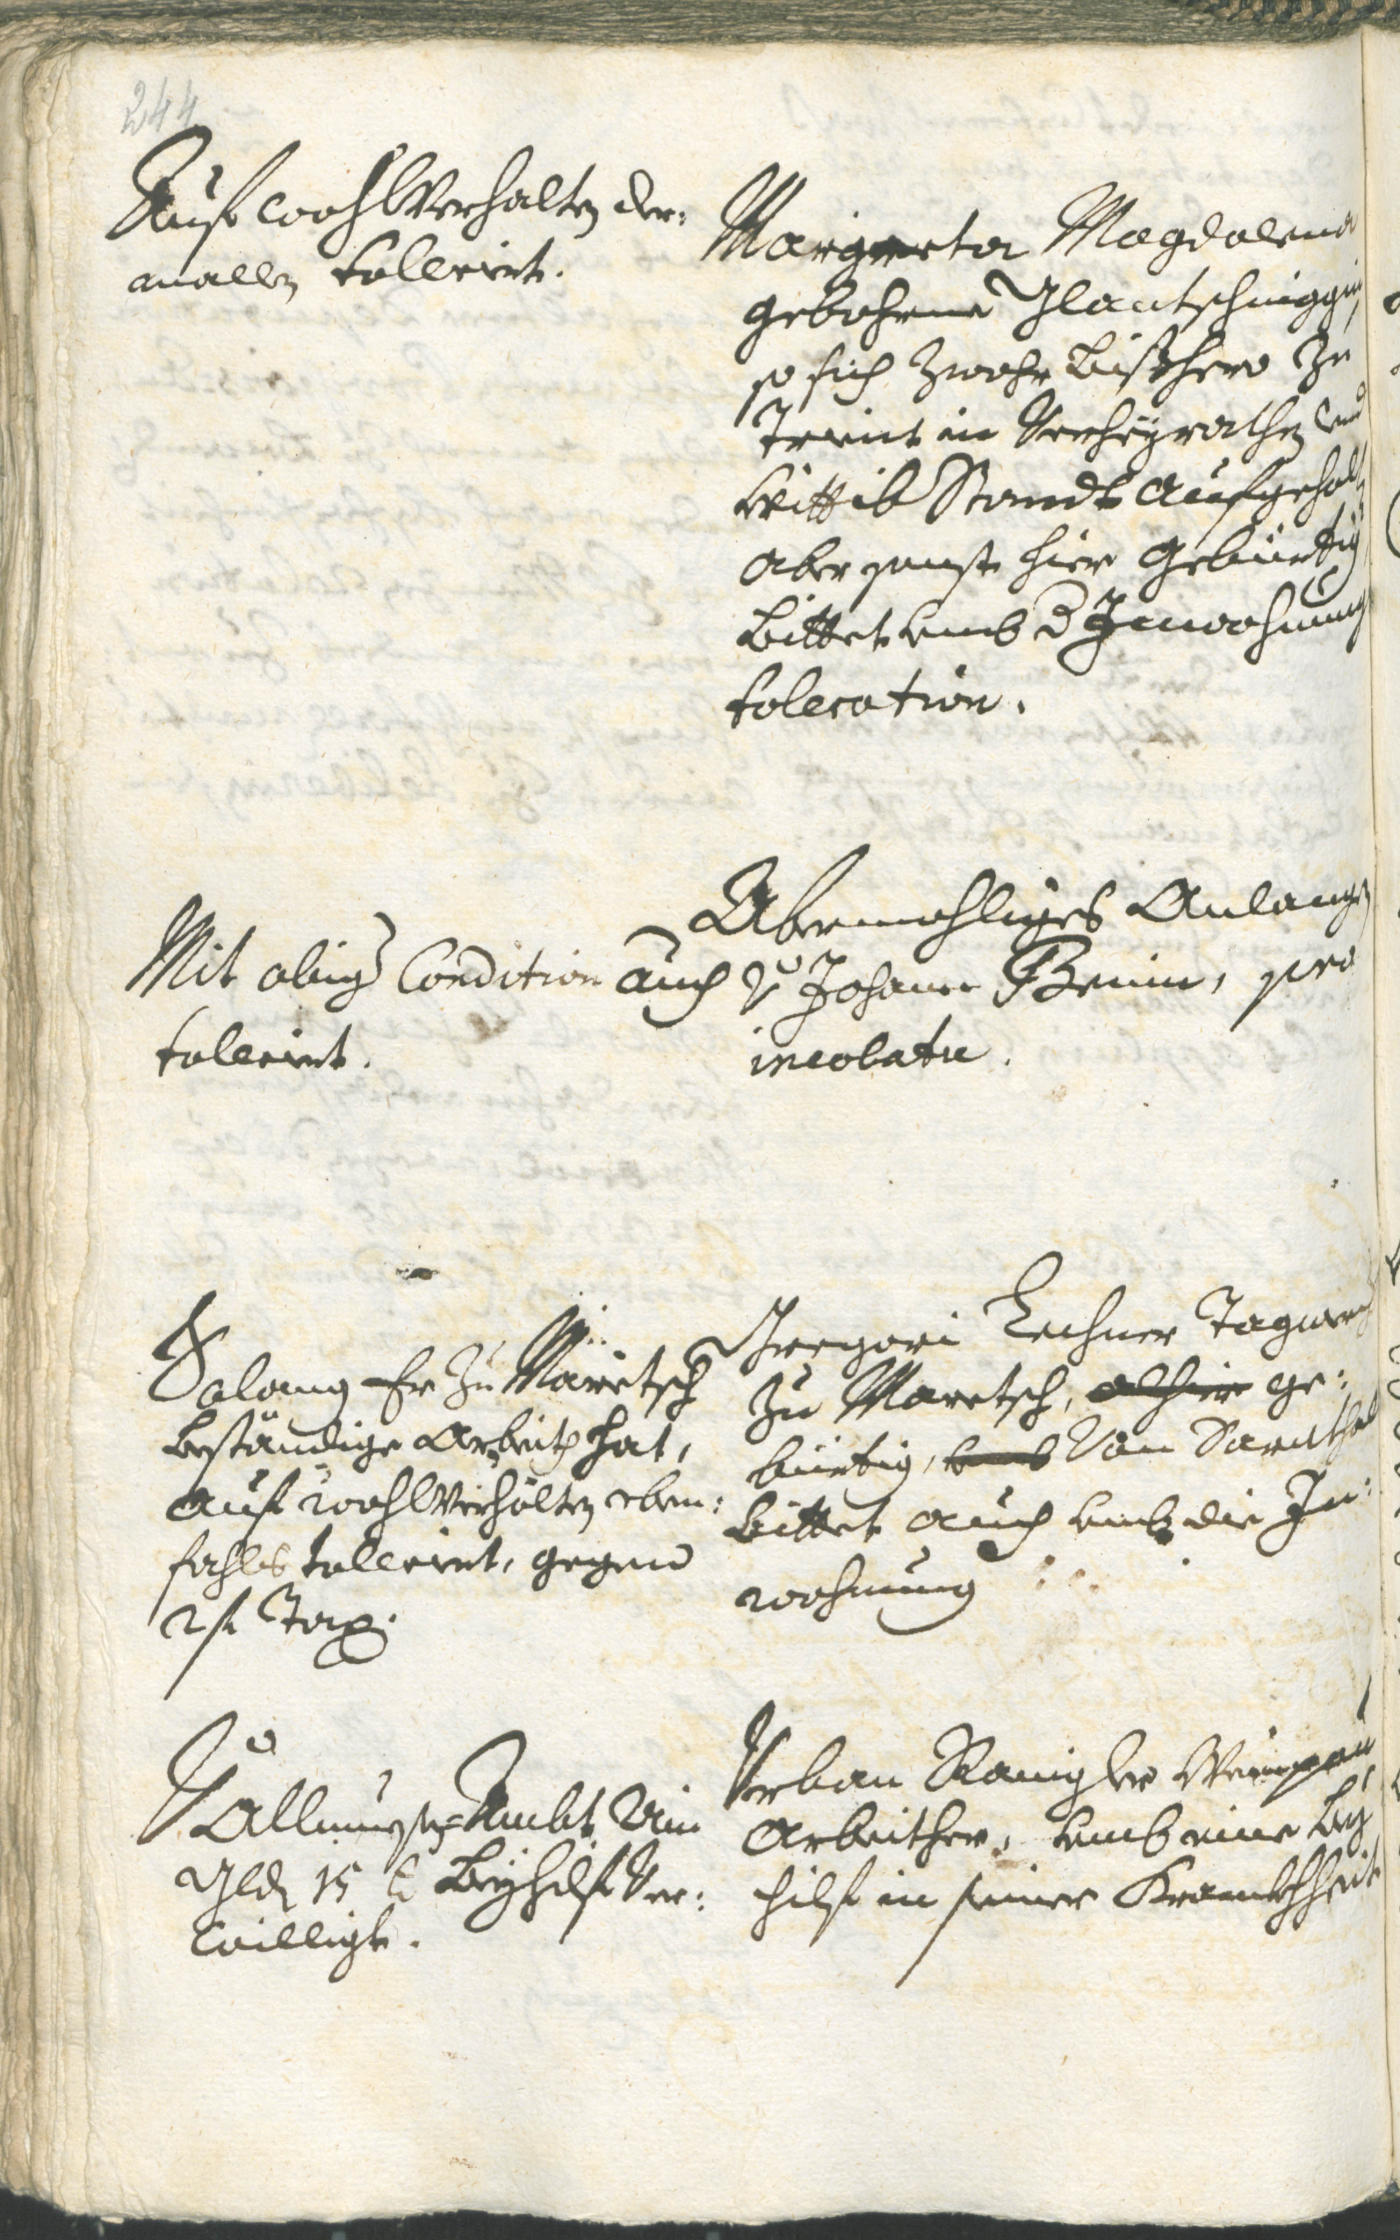 244
Auf wohlVerhalten der:
mallen tollerirt.
Margreta Magdalena
gebohrne Glantschniggin
so sich zwahr bisshero zu
Trient in Verheyrathen und
Wittib Standt aufgehalten
aber sonst hier gebürtig
bittet umb d Inwohnung
toleration.
Mit obiger Condition auch
tollerirt.
Abermahliges Anlangen
Johann Brunn, pro
incolatu.
Solang Er zu Maretsch
beständige Arbeit hat,
auf wohlVerhalten eben:
fahls tollerirt, gegen
2 f Tax.
Gregori Lechner Tagwercher
zu Maretsch, alhier ge:
bürtig, umb Von Sarnthal
bittet auch umb die In:
wohnung
Allmuesen Ambt Ain
Gld 15 k Beyhilf Ver:
willigt.
Urban Ranigler
Arbeither, umb eine Bey
hilf in seiner Kranckheit